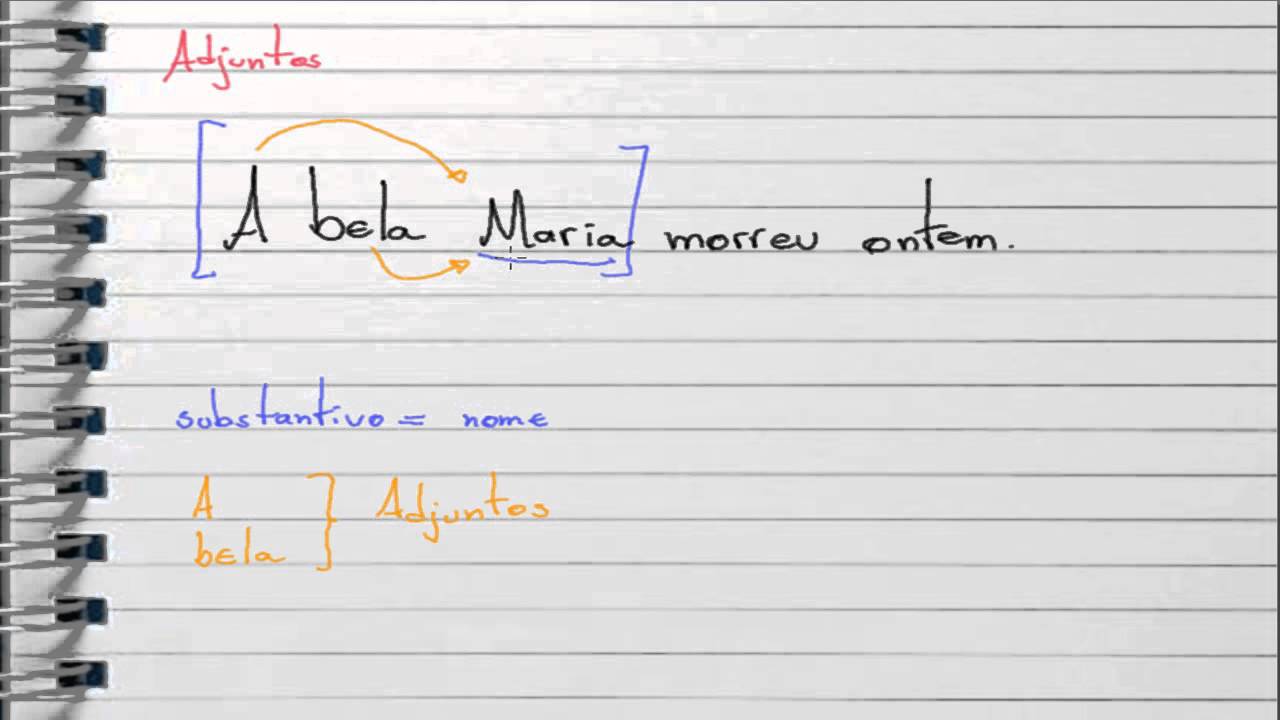 Adjuntos
A bela Maria morreu ontem.
substantivo = nome
A
bela
Adjuntos